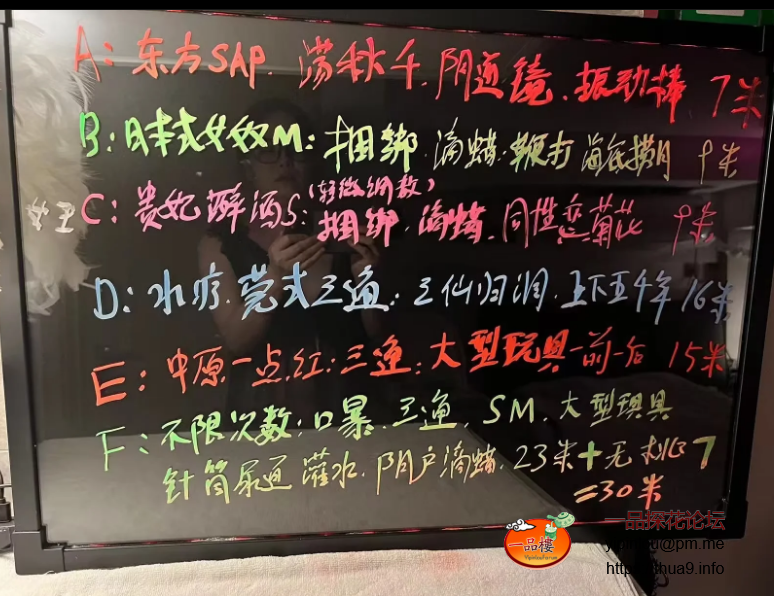 A: 东方SAP. 荡秋千. 阴道镜. 振动棒 7米
B: 日本式女奴M: 捆绑. 滴蜡. 鞭打 海底捞月 9米
(轻微调教)
女王 C: 贵妃醉酒S: 捆绑. 滴蜡. 同性恋菊花 9米
D: 水疗. 莞式三通: 三仙归洞. 上下五千年 16米
E: 中原一点红: 三通: 大型玩具一前一后 15米
F: 不限次数: 口暴. 三通. SM. 大型玩具
针筒尿道灌水. 阴户滴蜡. 23米+无 7
=30米
一品樓
YipinlouForum
一品探花论坛
@pm.me
hua9.info